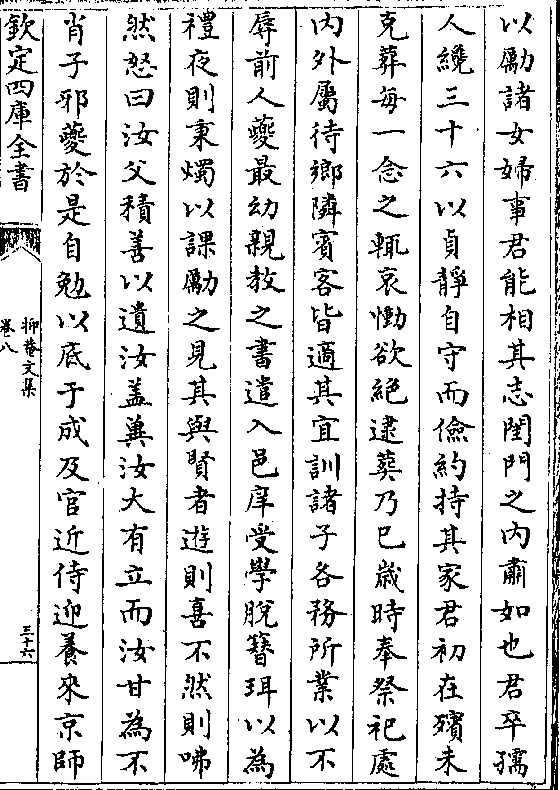 以勵諸女婦事君能相其志閨門之内肅如也君卒孺
人纔三十六以貞靜自守而儉約持其家君初在殯未
克葬每一念之輒哀慟欲絶逮葬乃已歳時奉祭祀處
内外屬待鄉隣賓客皆適其宜訓諸子各務所業以不
辱前人夔最幼親教之書遣入邑庠受學脫簪珥以為
禮夜則秉燭以課勵之見其與賢者遊則喜不然則咈
然怒曰汝父積善以遺汝盖冀汝大有立而汝甘為不
肖子邪夔於是自勉以底于成及官近侍迎養來京師
欽定四庫全書
抑菴文集
卷八
三十六